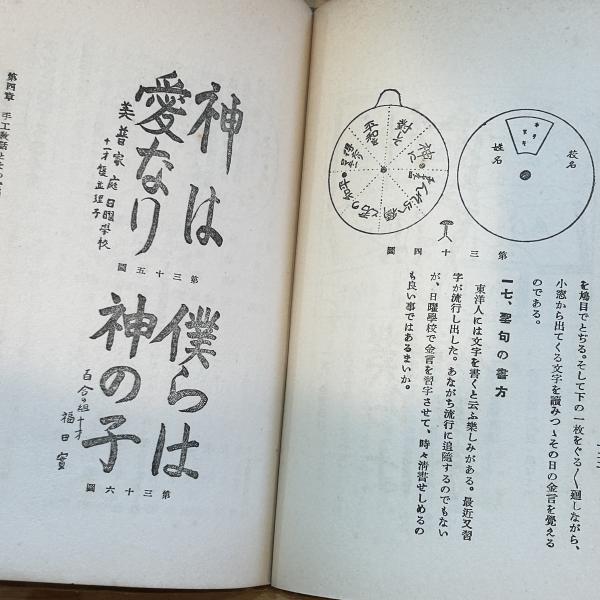 校名
姓名
第三十四圖
を鳩目でとぢる。そして下の一枚をぐる〳〵廻しながら、
小窓から出てくる文字を讀みつゝその日の金言を覺える
のである。
一七、聖句の書方
東洋人には文字を書くと云ふ樂しみがある。最近又習
字が流行し出した。あながち流行に追隨するのでもない
が、日曜學校で金言を習字させて、時々淸書せしめるの
も良い事ではあるまいか。
神は
愛なり
美普家庭日曜學校
第三十五圖
僕らは
神の子
百合組十才
第三十六圖
第四章 手工敎話